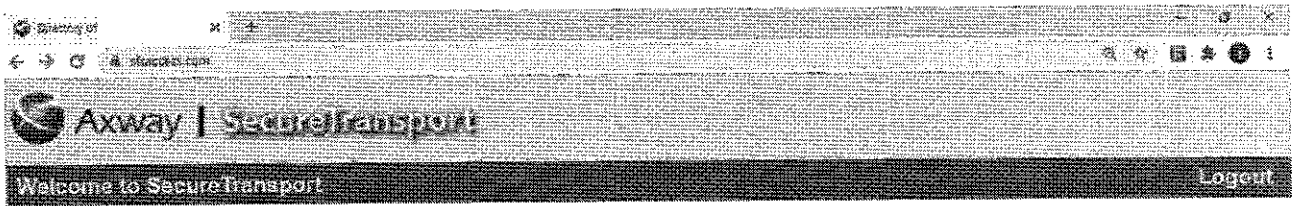 Axway | SecureTransport
Welcome to SecureTransport Logout